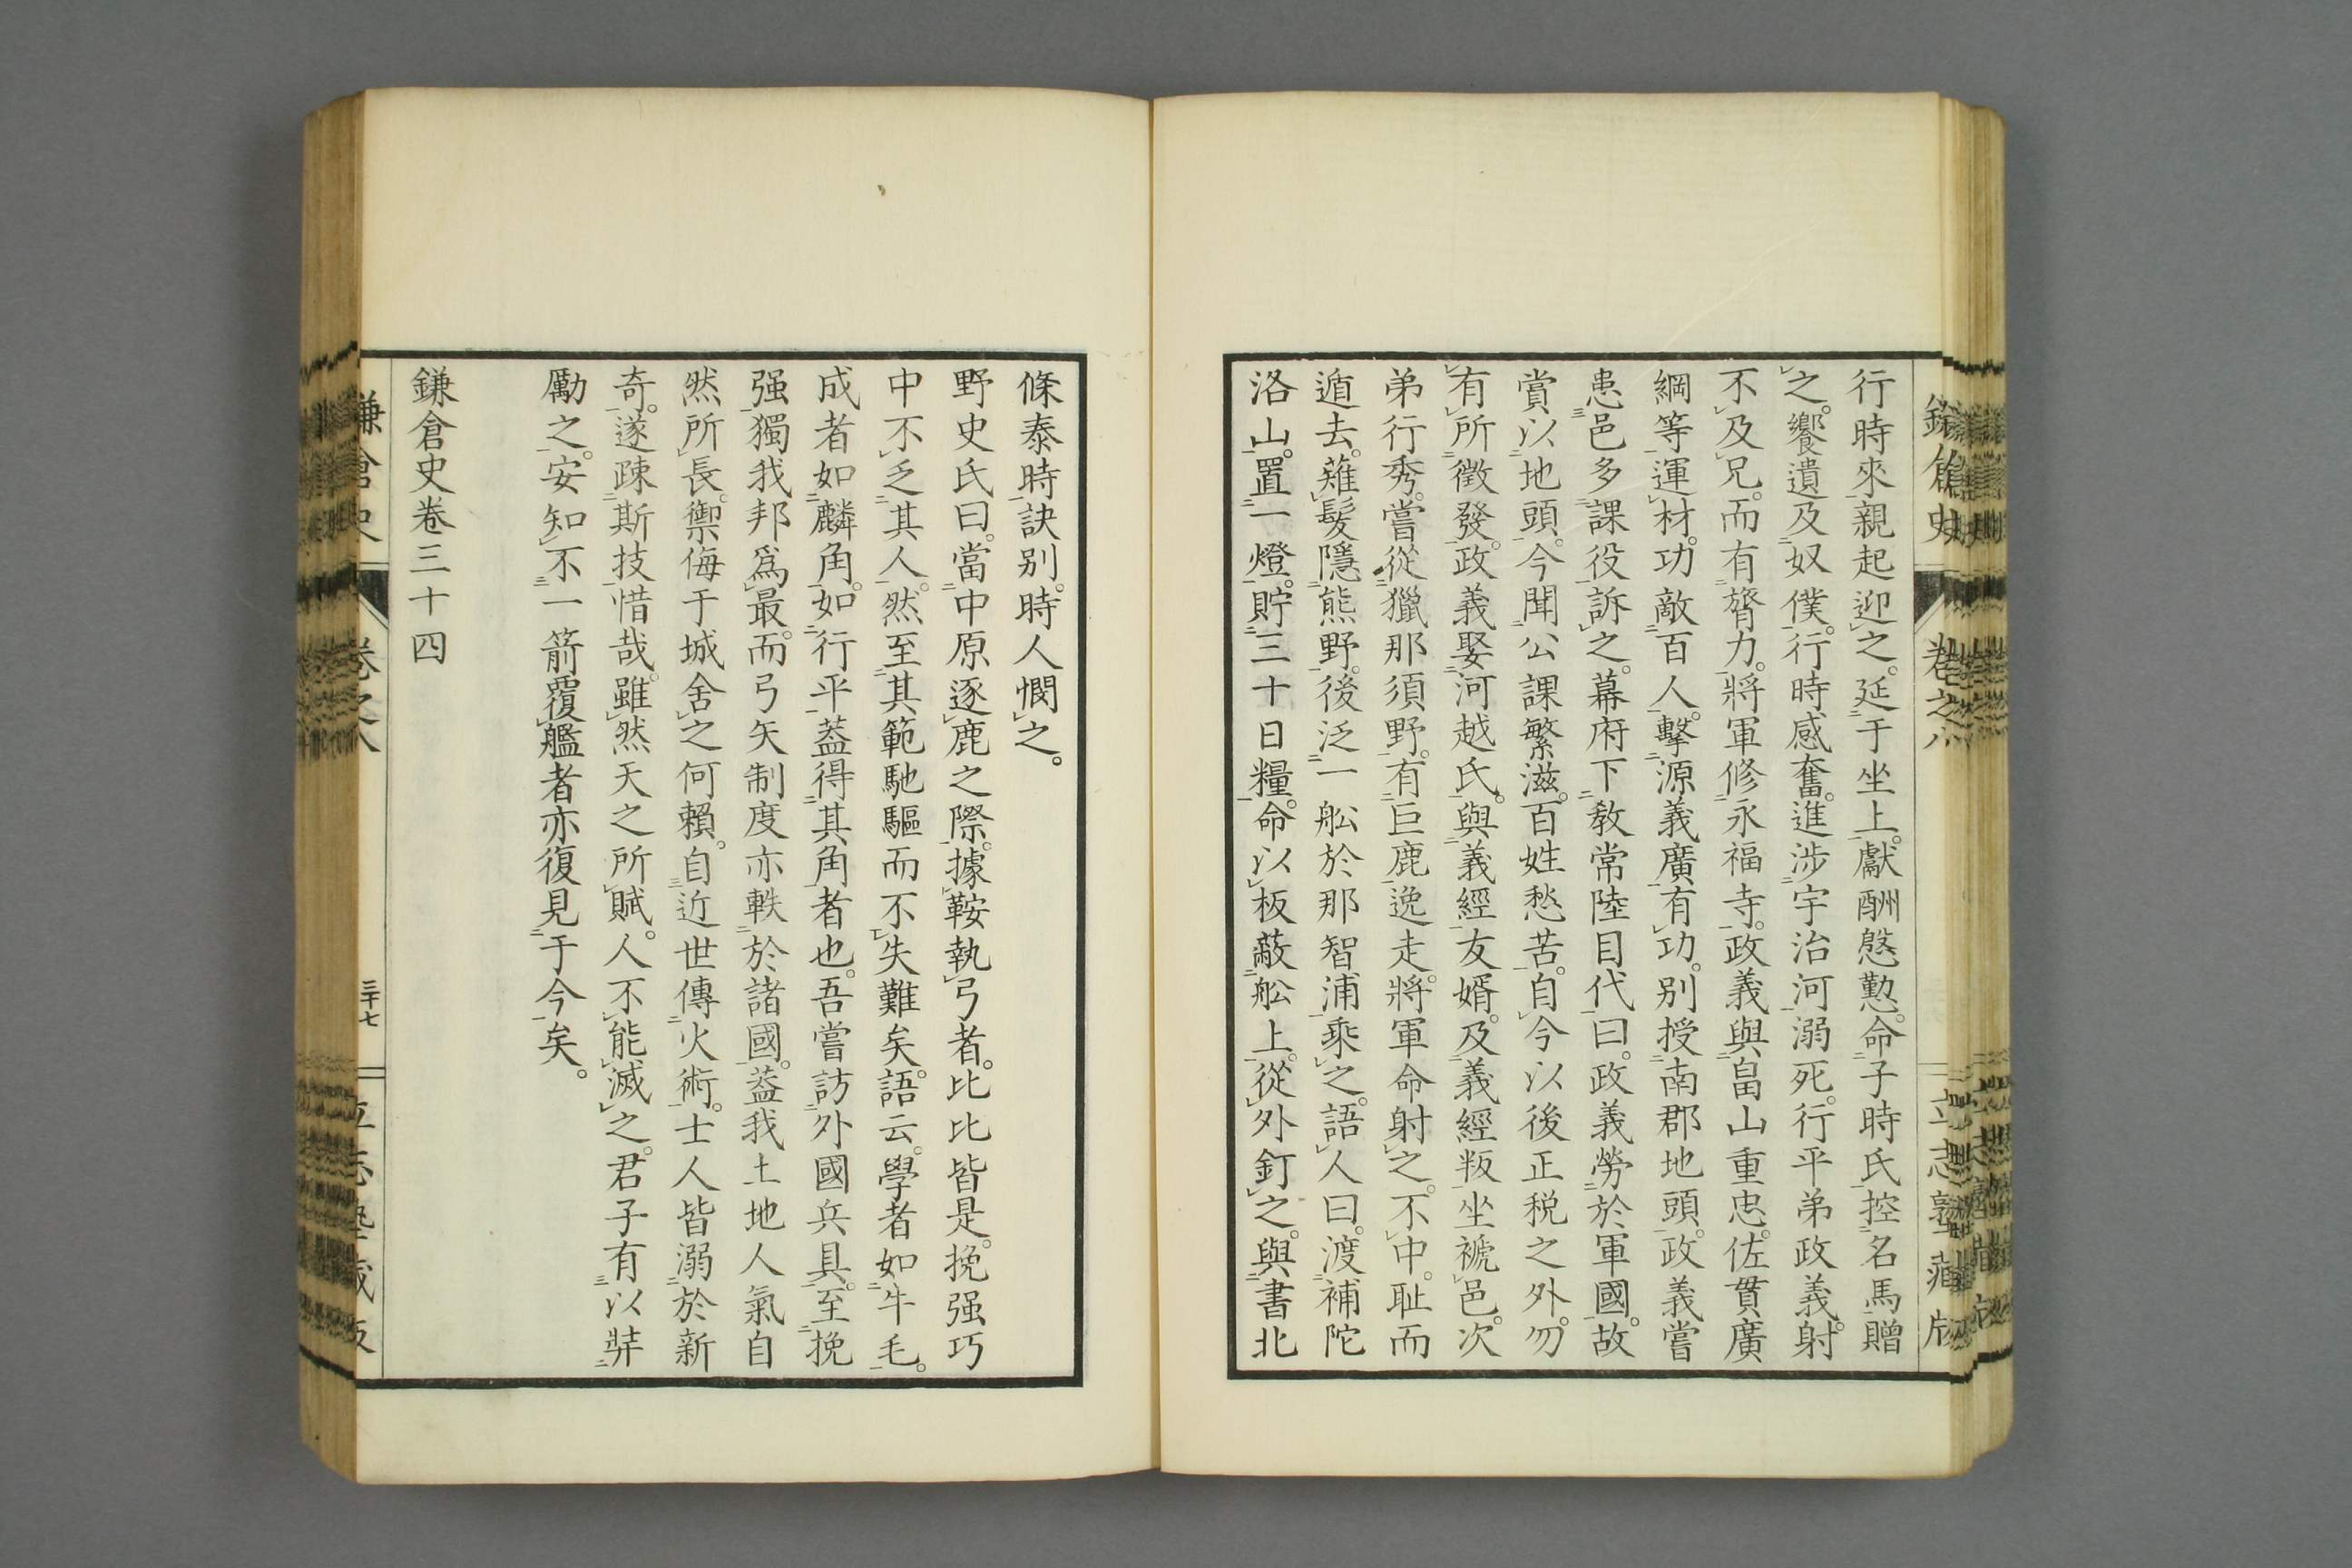 行時來親起迎之。延于坐上。獻酬慇懃。命子時氏控名馬贈
之。饗遺及奴僕。行時感奮。進渉宇治河。溺死。行平弟政義。射
不及兄。而有膂力。將軍修永福寺。政義與畠山重忠。佐貫廣
綱等運材。功敵百人。擊源義廣有功。別授南郡地頭。政義嘗
患邑多課役訴之。幕府下教常陸目代曰。政義勞於軍國。故
賞以地頭。今聞公課繁滋。百姓愁苦。自今以後正税之外。勿
有所徵發。政義娶河越氏。與義經友婿。及義經叛坐褫邑。次
弟行秀。嘗從獵那須野。有巨鹿逸走。將軍命射之。不中。耻而
遁去。薙髮隱熊野。後泛一舩於那智浦乘之。語人曰。渡補陀
洛山。置一燈。貯三十日糧。命以板蔽舩上。從外釘之。與書北
條泰時訣別。時人憫之。
野史氏曰。當中原逐鹿之際。據鞍執弓者。比比皆是。挽强巧
中不乏其人。然至其範馳驅而不失難矣。語云。學者如牛毛。
成者如麟角。如行平蓋得其角者也。吾嘗訪外國兵具。至挽
强獨我邦爲最。而弓矢制度亦軼於諸國。蓋我土地人氣自
然所長。禦侮于城舍之何賴。自近世傳火術。士人皆溺於新
奇。遂疎斯技。惜哉。雖然天之所賦。人不能滅之。君子有以弉
勵之。安知不一箭覆艦者亦復見于今矣。
鎌倉史卷三十四
鎌倉史 卷之八 三十七 立志塾藏版